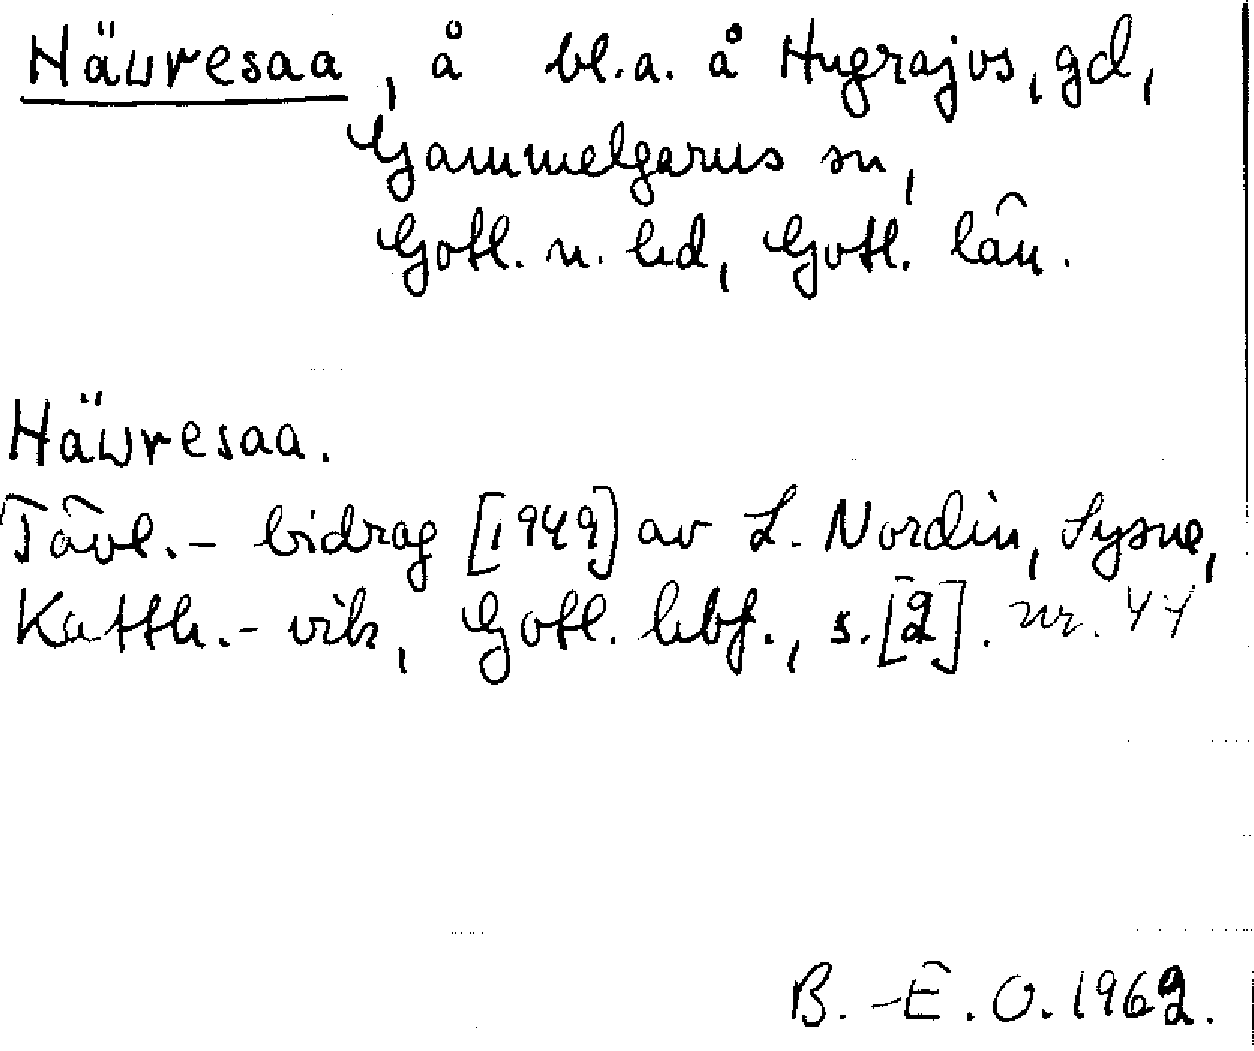 Häuresaa, å bl.a. å Hugrajvs, gd,
Gammelgarns sn,
Gotl. n. hd, Gotl. län.
Häuresaa.
Tävl.- bidrag [1949] av L. Nordin, Sysne,
Katth.- vik, Gotl. hbf., s. [2]. nr. 44
B. -E. O. 1962.